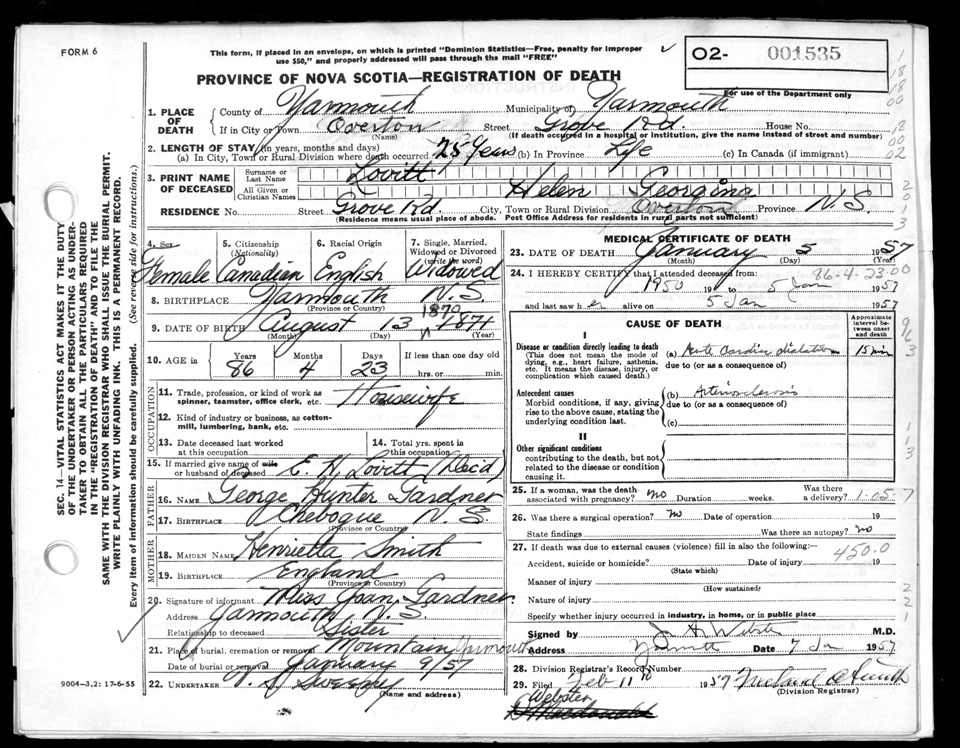 FORM 6
This form, if placed in an envelope, on which is printed "Dominion Statistics—Free, penalty for improper
use $50," and properly addressed will pass through the mail "FREE"
02- 001535
For use of the Department only
PROVINCE OF NOVA SCOTIA—REGISTRATION OF DEATH
1. PLACE OF DEATH
County of Yarmouth Municipality of Yarmouth
If in City or Town Overton (Name) Street Grove Rd. House No.
(If death occurred in a hospital or institution, give the name instead of street and number)
2. LENGTH OF STAY (in years, months and days)
(a) In City, Town or Rural Division where death occurred 25 Years (b) In Province Life (c) In Canada (if immigrant)
3. PRINT NAME OF DECEASED
Surname or Last Name Lovitt
All Given or Christian Names Helen Georgina
RESIDENCE No. Street Grove Rd. City, Town or Rural Division Overton Province N.S.
(Residence means usual place of abode. Post Office Address for residents in rural parts not sufficient)
4. Sex Female
5. Citizenship (Nationality) Canadian
6. Racial Origin English
7. Single, Married, Widowed or Divorced (write the word) Widowed
8. BIRTHPLACE Yarmouth N.S.
(Province or Country)
1870
9. DATE OF BIRTH August 13 1871
(Month) (Day) (Year)
10. AGE in Years 86 Months 4 Days 23 If less than one day old hrs. or min.
OCCUPATION
11. Trade, profession, or kind of work as spinner, teamster, office clerk, etc. Housewife
12. Kind of industry or business, as cotton-mill, lumbering, bank, etc.
13. Date deceased last worked at this occupation
14. Total yrs. spent in this occupation
15. If married give name of wife or husband of deceased E. H. Lovitt (Dec'd)
FATHER
16. Name George Hunter Gardner
17. Birthplace Chebogue N.S.
(Province or Country)
MOTHER
18. Maiden Name Henrietta Smith
19. Birthplace England
(Province or Country)
20. Signature of informant Miss Joan Gardner
Address Yarmouth N.S.
Relationship to deceased Sister
21. Place of burial, cremation or removal Mountain Yarmouth
Date of burial or removal January 9/57
22. UNDERTAKER V. S. Sweeny
(Name and address)
9004—3,2: 17-6-55
SEC. 14—VITAL STATISTICS ACT MAKES IT THE DUTY
OF THE UNDERTAKER OR PERSON ACTING AS UNDER-
TAKER TO OBTAIN ALL THE PARTICULARS REQUIRED
IN THE "REGISTRATION OF DEATH" AND TO FILE THE
SAME WITH THE DIVISION REGISTRAR WHO SHALL ISSUE THE BURIAL PERMIT.
WRITE PLAINLY WITH UNFADING INK. THIS IS A PERMANENT RECORD.
Every item of information should be carefully supplied. (See reverse side for instructions.)
MEDICAL CERTIFICATE OF DEATH
23. DATE OF DEATH January 5 1957
(Month) (Day) (Year)
24. I HEREBY CERTIFY that I attended deceased from: 86-4-23-00
1950 19 to 5 Jan 1957
and last saw her alive on 5 Jan 1957
CAUSE OF DEATH
Approximate interval between onset and death
I
Disease or condition directly leading to death
(This does not mean the mode of dying, e.g., heart failure, asthenia, etc. It means the disease, injury, or complication which caused death.)
(a) Acute Cardiac dilatation 15 min
due to (or as a consequence of)
Antecedent causes
Morbid conditions, if any, giving rise to the above cause, stating the underlying condition last.
(b) Arteriosclerosis
due to (or as a consequence of)
(c)
II
Other significant conditions
contributing to the death, but not related to the disease or condition causing it.
25. If a woman, was the death associated with pregnancy? no Duration weeks. Was there a delivery? 1-05-7
26. Was there a surgical operation? no Date of operation 19
State findings Was there an autopsy? no
27. If death was due to external causes (violence) fill in also the following:— 450.0
Accident, suicide or homicide? Date of injury 19
(State which)
Manner of injury
(How sustained)
Nature of injury
Specify whether injury occurred in industry, in home, or in public place
Signed by Webster M.D.
Address Yarmouth Date 7 Jan 1957
28. Division Registrar's Record Number
29. Filed Feb 11th 1957
(Division Registrar)
Webster